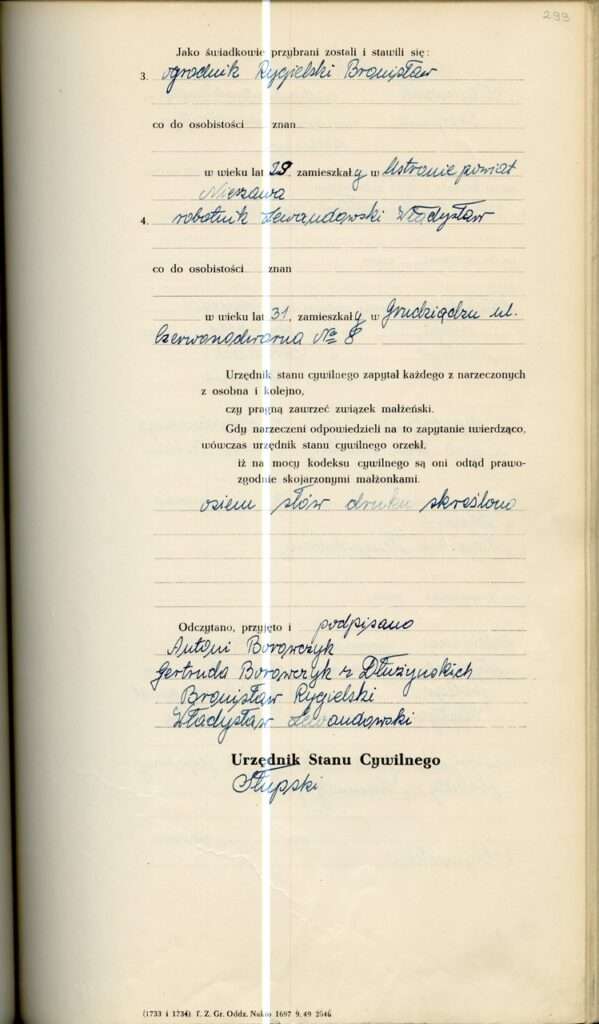 299
Jako świadkowie przybrani zostali i stawili się:
3. ogrodnik Rygielski Bronisław
co do osobistości znan
w wieku lat 29, zamieszkały w Ustronie powiat
Nieszawa
4. robotnik Lewandowski Władysław
co do osobistości znan
w wieku lat 31, zamieszkały w Grudziądzu ul.
Czerwonodworna No 8
Urzędnik stanu cywilnego zapytał każdego z narzeczonych
z osobna i kolejno,
czy pragną zawrzeć związek małżeński.
Gdy narzeczeni odpowiedzieli na to zapytanie twierdząco,
wówczas urzędnik stanu cywilnego orzekł,
iż na mocy kodeksu cywilnego są oni odtąd prawo-
zgodnie skojarzonymi małżonkami.
osiem słów druku skreślono
Odczytano, przyjęto i podpisano
Antoni Borowczyk
Gertruda Borowczyk z Dłużyńskich
Bronisław Rygielski
Władysław Lewandowski
Urzędnik Stanu Cywilnego
Słupski
(1733 i 1734) T. Z. Gr. Oddz. Nakło 1697 9. 49 2546